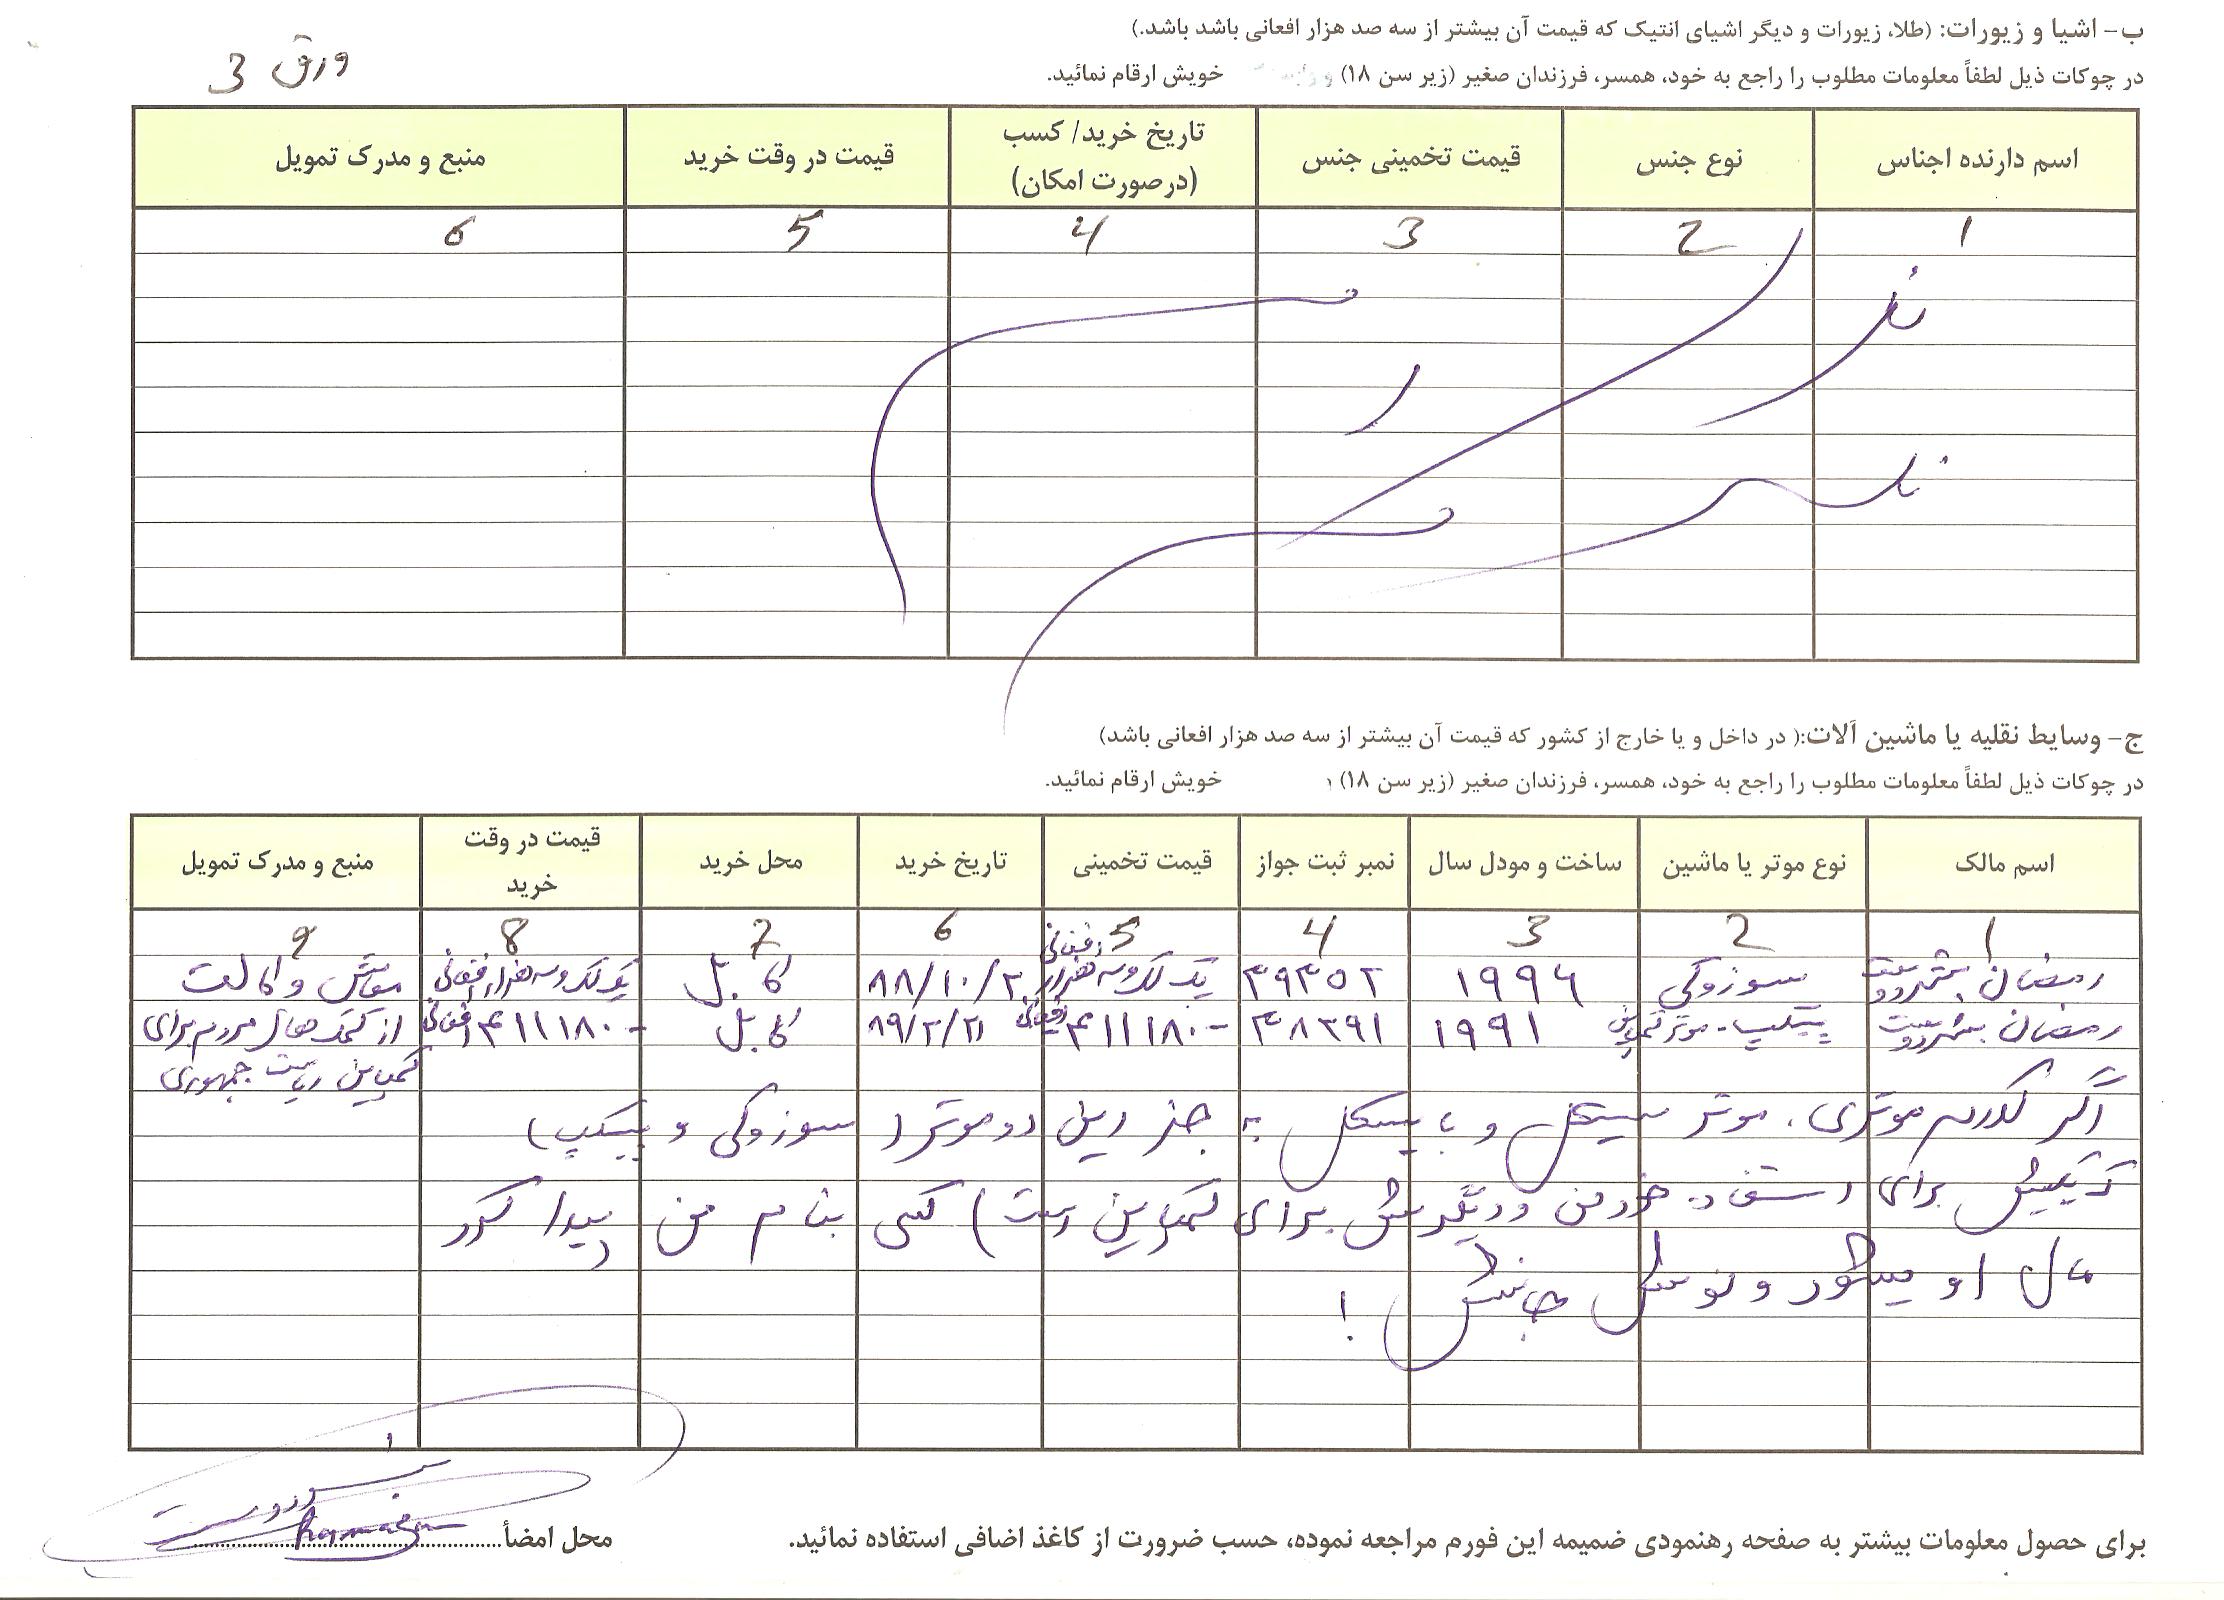 ورق 3
ب- اشیا و زیورات: (طلا، زیورات و دیگر اشیای انتیک که قیمت آن بیشتر از سه صد هزار افعانی باشد باشد.)
در چوکات ذیل لطفاً معلومات مطلوب را راجع به خود، همسر، فرزندان صغیر (زیر سن ۱۸) خویش ارقام نمائید.
اسم دارنده اجناس نوع جنس قیمت تخمینی جنس تاریخ خرید/ کسب (درصورت امکان) قیمت در وقت خرید منبع و مدرک تمویل
1 2 3 4 5 6
ج- وسایط نقلیه یا ماشین آلات:( در داخل و یا خارج از کشور که قیمت آن بیشتر از سه صد هزار افعانی باشد)
در چوکات ذیل لطفاً معلومات مطلوب را راجع به خود، همسر، فرزندان صغیر (زیر سن ۱۸) خویش ارقام نمائید.
اسم مالک نوع موتر یا ماشین ساخت و مودل سال نمبر ثبت جواز قیمت تخمینی تاریخ خرید محل خرید قیمت در وقت خرید منبع و مدرک تمویل
1 2 3 4 5 6 7 8 9
رمضان بشردوست سوزوکی ۱۹۹۶ ۳۹۳۵۲ یک لک و سه هزار افغانی ۸۸/۱۰/۲۰ کابل یک لک و سه هزار افغانی معاش وکالت
رمضان بشردوست پیکپ - موتر نمایش ۱۹۹۱ ۳۸۲۹۱ ۳۱۱۱۸۰- افغانی ۸۹/۲/۲۱ کابل ۳۱۱۱۸۰- افغانی از کمک های مردم برای
کمپاین ریاست جمهوری
اگر کدام موتری، موتر سیکل و بایسکل به جز این دو موتر (سوزوکی و پیکپ)
که یکیش برای استفاده خود من و دیگرش برای کمپاین است) کسی بنام من پیدا کرد
مال او میشود و نوش جانش !
برای حصول معلومات بیشتر به صفحه رهنمودی ضمیمه این فورم مراجعه نموده، حسب ضرورت از کاغذ اضافی استفاده نمائید.
محل امضأ
بشردوست
Ramazan